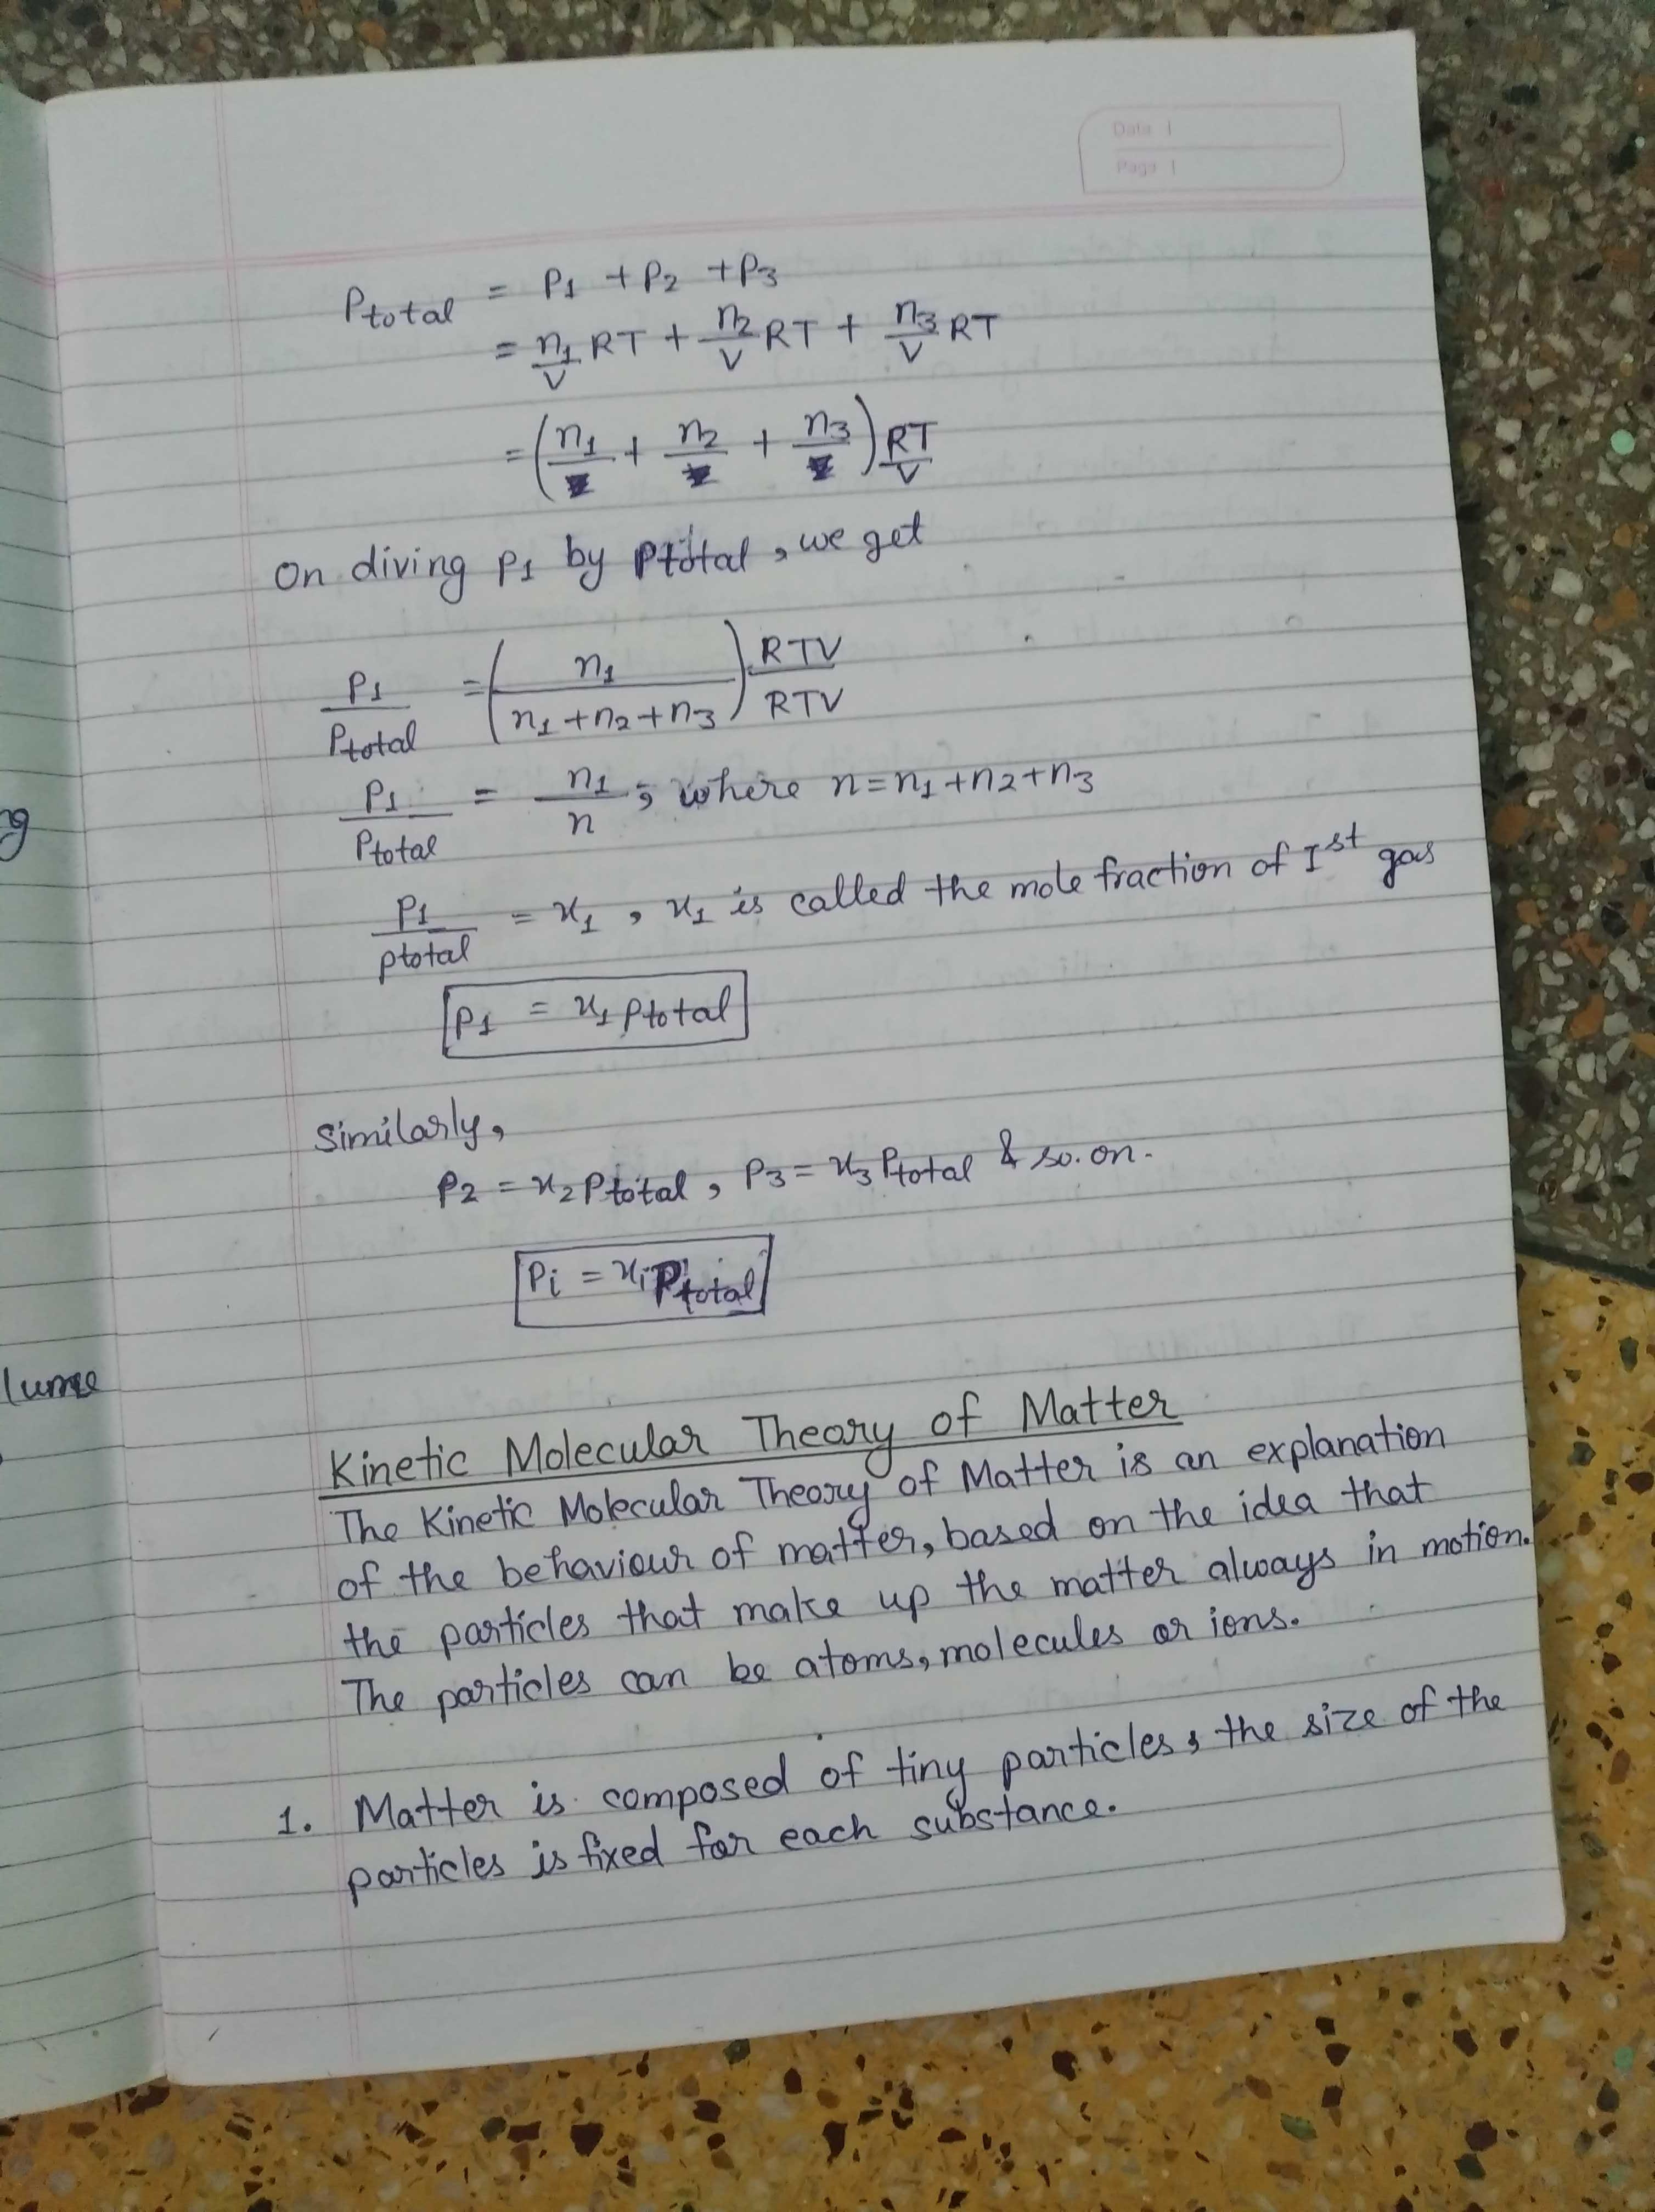 Data |
Page |
Ptotal = P1 + P2 + P3
= n1/V RT + n2/V RT + n3/V RT
= (n1 + n2 + n3) RT/V
On diving P1 by Ptotal, we get
P1/Ptotal = (n1/(n1+n2+n3)) RTV/RTV
P1/Ptotal = n1/n, where n=n1+n2+n3
P1/Ptotal = x1, x1 is called the mole fraction of Ist gas
P1 = x1 Ptotal
Similarly,
P2 = x2 Ptotal, P3 = x3 Ptotal & so. on.
Pi = xi Ptotal
Kinetic Molecular Theory of Matter
The Kinetic Molecular Theory of Matter is an explanation
of the behaviour of matter, based on the idea that
the particles that make up the matter always in motion.
The particles can be atoms, molecules or ions.
1. Matter is composed of tiny particles, the size of the
particles is fixed for each substance.